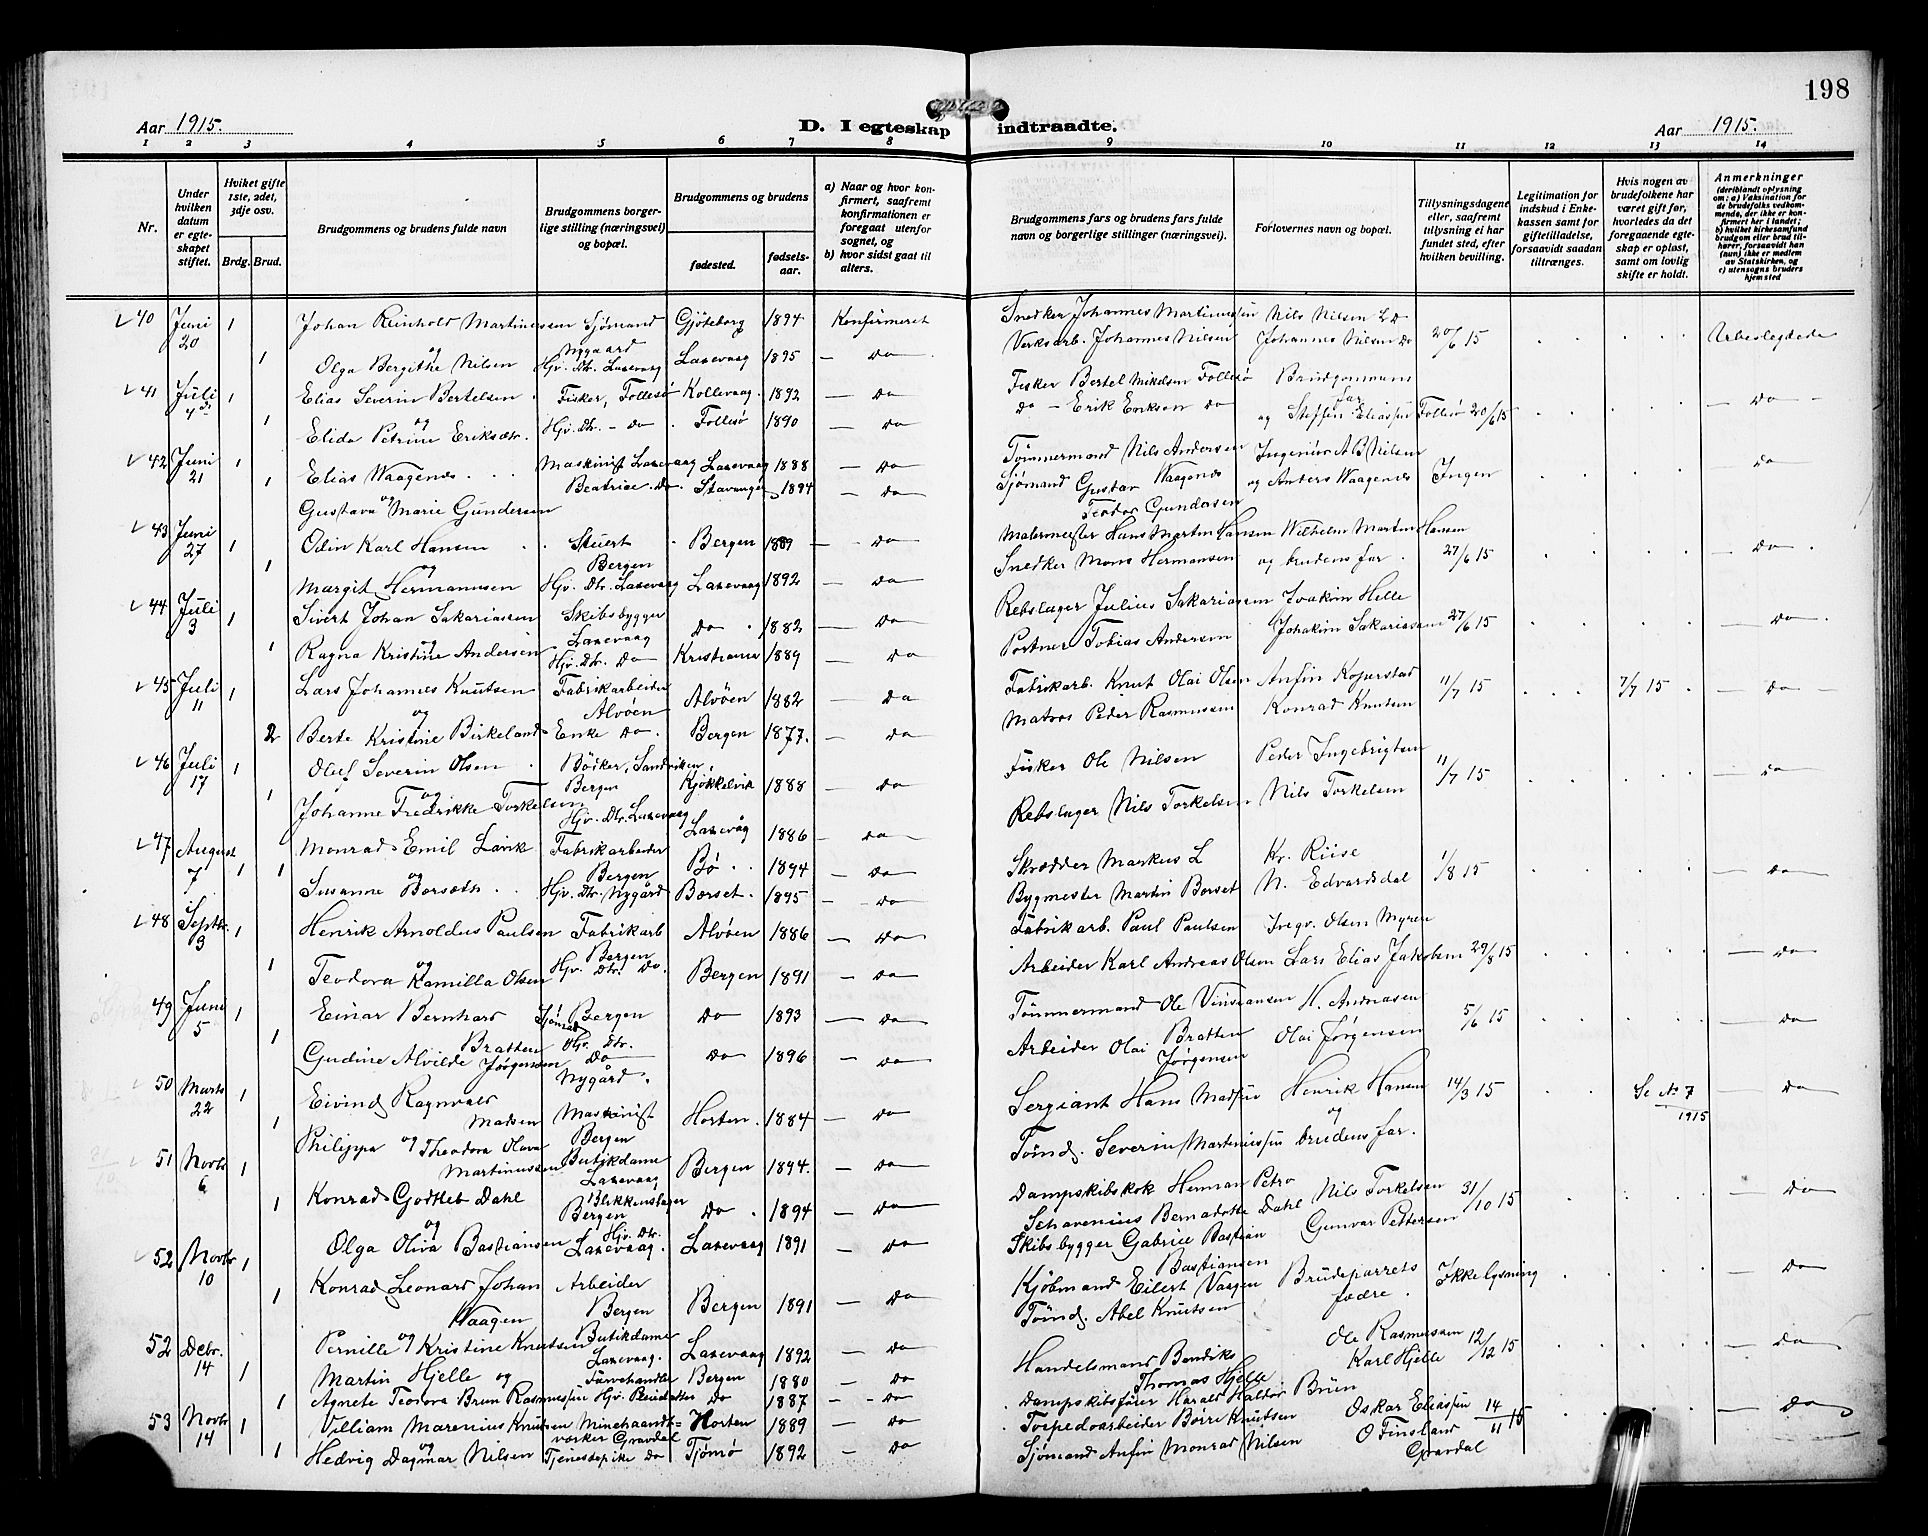 198
Aar 1915.
D. I egteskap indtraadte.
Aar 1915.
1 2 3 4 5 6 7 8 9 10 11 12 13 14
Nr.
Under hvilken datum er egteskapet stiftet.
Hviket gifte, 1ste, 2det, 3dje osv.
Brdg. Brud.
Brudgommens og brudens fulde navn
Brudgommens borgerlige stilling (næringsvei) og bopæl.
Brudgommens og brudens
fødested.
fødselsaar.
a) Naar og hvor konfirmert, saafremt konfirmationen er foregaat utenfor sognet, og
b) hvor sidst gaat til alters.
Brudgommens fars og brudens fars fulde navn og borgerlige stillinger (næringsvei).
Forlovernes navn og bopæl.
Tillysningsdagene eller, saafremt tillysning ei har fundet sted, efter hvilken bevilling.
Legitimation for indskud i Enkekassen samt for giftetilladelse, forsaavidt saadan tiltrænges.
Hvis nogen av brudefolkene har været gift før, hvorledes da det foregaaende egteskap er opløst, samt om lovlig skifte er holdt.
Anmerkninger (deriblandt oplysning om: a) Vaksination for de brudefolks vedkommende, der ikke er konfirmert her i landet; b) hvilket kirkesamfund brudgom eller brud tilhører, forsaavidt han (hun) ikke er medlem av Statskirken, og c) utensogns bruders hjemsted
40 Juni 20 1 Johan Reinhold Martinessen Sjømand Nygaard Gjöteborg 1894 Konfirmeret Snedker Johannes Martinussen Nils Nilsen L D 20/6 15
og 1 Olga Bergithe Nilsen Hjv. Dtr. Laxevaag Laxevaag 1895 — Do Verksarb. Johannes Nilsen Johannes Nilsen Do
41 Juli 4de 1 Elias Severin Bertelsen Fisker, Follesø Kollevaag 1892 — Do Fisker Bertel Mikelsen Follesø Brudgommens far — Do —
og 1 Elida Petrine Eriksdtr. Hjv. Dtr. — Do Follesø 1890 — Do Do — Erik Eriksen Do og Steffen Eliassen Follesø 20/6 15
42 Juni 21 1 Elias Waagenes Maskinist Laxevaag Laxevaag 1888 — Do Tømmermand Nils Andersen Waagenes Ingeniør A B Nilsen Ingen Do
og 1 Gustava Marie Gundersen Beatrice. Do Stavanger 1894 — Do Sjømand Gustav Teodor Gundersen og Anders Waagenes
43 Juni 27 1 Odin Karl Hansen Stuert Bergen Bergen 1889 — Do Malermester Hans Martin Hansen Wilhelm Martin Hansen 27/6 15 — Do
og 1 Margit Hermannsen Hjv. Dtr. Laxevaag Laxevaag 1892 — Do Snedker Mons Hermansen og brudens far
44 Juli 3 1 Sivert Johan Sakariassen Skibsbygger Laxevaag Do 1882 — Do Rebslager Julius Sakariassen Joakim Hille 27/6 15 — Do
og 1 Ragna Kristine Andersen Hjv. Dtr. Do Kristiania 1889 — Do Portner Tobias Andersen Johakim Sakariassen
45 Juli 11 1 Lars Johannes Knutsen Fabrikarbeider Alvöen Alvöen 1882 — Do Fabrikarb. Knut Olai Olsen 11/7 15 7/7 15 Do
og 2 Berte Kristine Birkeland Enke Do. Bergen 1877. — Do Matros Peder Rasmussen Konrad Knutsen
46 Juli 17 1 Oluf Severin Olsen Bødker, Sandviken, Bergen Kjøkkelvik 1888 — Do Fisker Ole Nilsen Peder Ingebrigtsen 11/7 15 Do
og 1 Johanne Fredrikke Torkelsen Hjv. Dtr. Laxevaag Laxevåg 1886 — Do Rebslager Nils Torkelsen Nils Torkelsen
47 August 7 1 Monrad Emil Lavik Fabrikarbeider Bergen Bø 1894 — Do Skrædder Markus L Kr. Riise 1/8 15 — Do
og 1 Susanne Borseth Hjv. Dtr. Nygård Borset 1895 — Do Bygmester Martin Borset N. Edvardsdal
48 Septbr. 3 1 Henrik Arnoldus Paulsen Fabrikarb Bergen Alvöen 1886 — Do Fabrikarb. Paul Paulsen Ingv. Olsen Myren — Do
og 1 Teodora Kamilla Olsen Hjv. Dtr. Do. Bergen 1891 — Do Arbeider Karl Andreas Olsen Lars Elias Jakobsen 29/8 15
49 Juni 5 1 Einar Bernhard Bratten Sjömd Bergen Do 1893 — Do Tømmermand Ole Bratten 5/6 15 — Do
1 Gudine Alvilde Jørgensen Hjv. Dtr. Do Nygård. Do 1896 — Do Arbeider Olai Jørgensen Olai Jørgensen
50 Marts 22 1 Eivind Ragnvald Madsen Maskinist Bergen Horten 1884 — Do Sergiant Hans Madsen Henrik Hansen 14/3 15 Se No 7 1915 — Do
og 1 Philippa Theodora Olava Martinussen Butikdame Laxevaag Bergen 1894. — Do Tømd. Severin Martinussen og brudens far.
51 Novbr 6 1 Konrad Godtleb Dahl Blikkenslager Bergen Do 1894 — Do Dampskibskok Herman Petro Schavenius Bernadotte Dahl Nils Torkelsen 31/10 15 — Do
og 1 Olga Oliva Bastiansen Hjv. Dtr. Laxevaag. Laxevaag 1891 — Do Skibsbygger Gabriel Bastian Bastiansen Gunvar Pettersen
52 Novbr 10 1 Konrad Leonard Johan Waagen Arbeider Bergen Bergen 1891 — Do Kjöbmand Eilert Vaagen Brudeparrets fædre. Ikke lysning — Do
og 1 Pernille Kristine Knutsen Butikdame Laxevaag. Laxevaag 1892 — Do Tømd. Abel Knutsen
52 Debr. 14 1 Martin Hjelle og Farvehandler Bergen 1880 — Do Handelsmand Bendiks Thomas Hjelle Ole Rasmussen Karl Hjelle 12/12 15 — Do
1 Agnete Teodora Brun Rasmussen Hjv. Do 1887 — Do Dampskibsfører Harald Haldor Brun
53 Novbr 14 1 Villiam Marenius Knutsen Minehaandværker Gravdal Horten 1889 — Do Torpedoarbeider Børre Knutsen Oskar Eliassen 14/11 15 — Do
og 1 Hedvig Dagmar Nilsen Tjenestepike Do Tjømø 1892 — Do Sjømand Anfin Monrad Nilsen O Finsland Gravdal